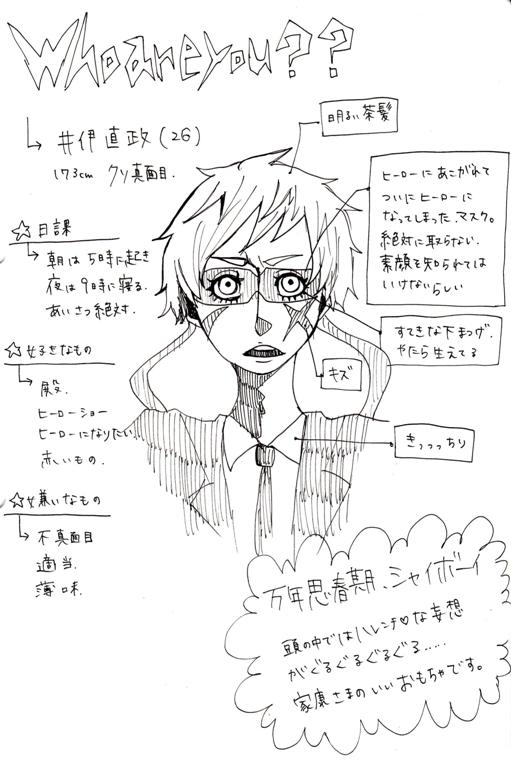 Who are you??
井伊直政(26)
173cm クソ真面目.
☆日課
朝は5時に起き
夜は9時に寝る.
あいさつ絶対.
☆好きなもの
殿.
ヒーローショー
ヒーローになりたい.
赤いもの.
☆嫌いなもの
不真面目
適当
薄味.
明るい茶髪
ヒーローにあこがれて
ついにヒーローに
なってしまったマスク。
絶対に取らない.
素顔を知られては
いけないらしい
すてきな下まつげ.
やたら生えてる
キズ
きっっっちり
万年思春期、シャイボーイ
頭の中ではハレンチ♡な妄想
がぐるぐるぐるぐる.....
家康さまのいいおもちゃです。